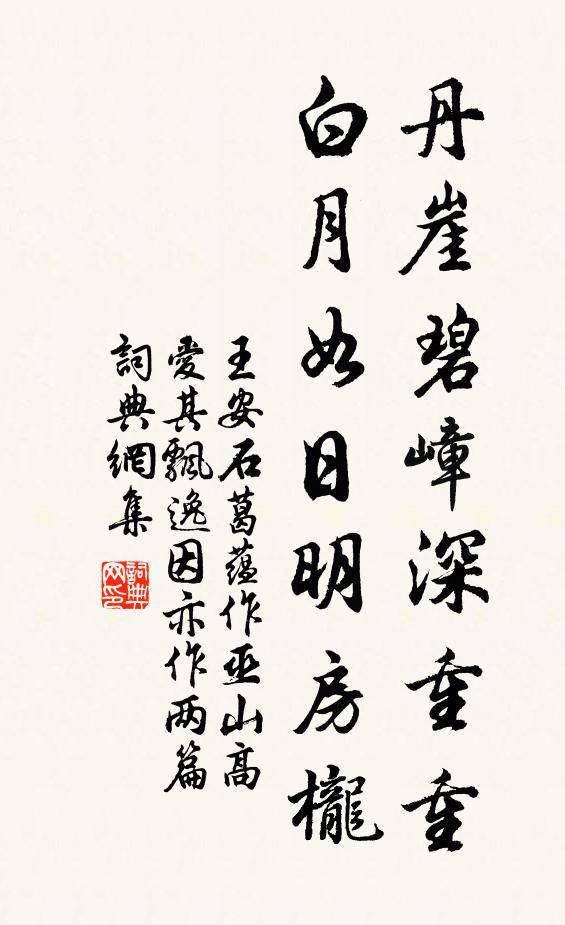 丹崖碧嶂深重重
白月如日明房櫳
王安石葛蘊作巫山高
愛其飄逸因亦作两篇
詞典網集
詞典网印